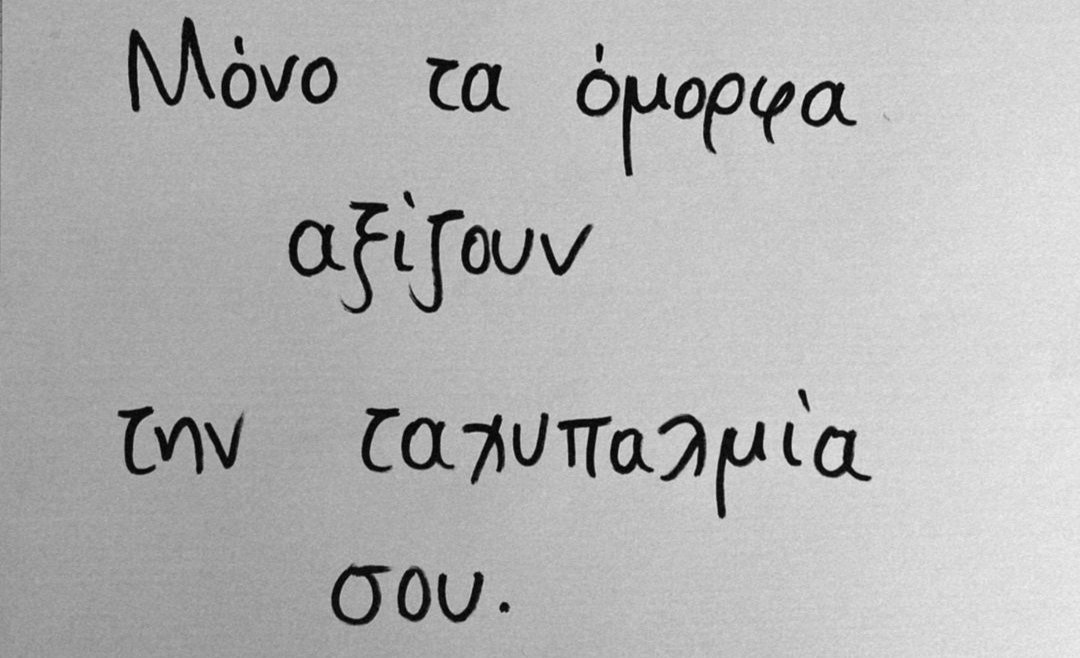 Μόνο τα όμορφα
αξίζουν
την ταχυπαλμία
σου.